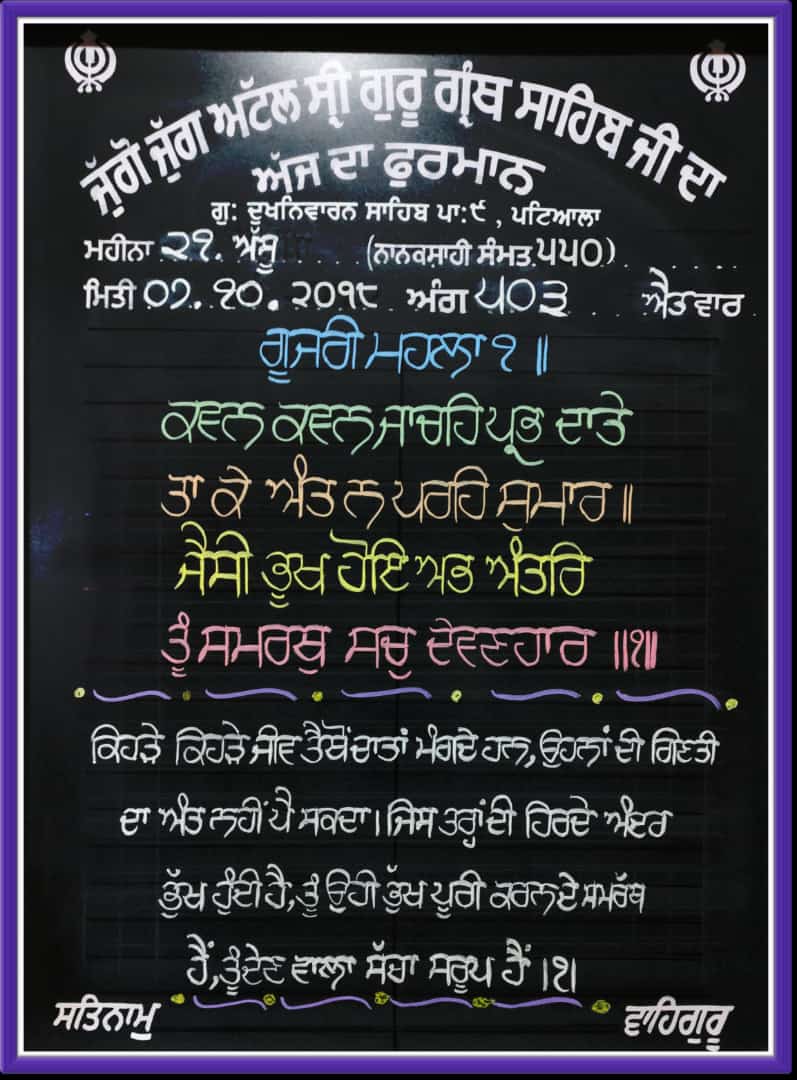 ਜੁੱਗੋ ਜੁੱਗ ਅਟੱਲ ਸ੍ਰੀ ਗੁਰੂ ਗ੍ਰੰਥ ਸਾਹਿਬ ਜੀ ਦਾ
ਅੱਜ ਦਾ ਫੁਰਮਾਨ
ਗੁ: ਦੂਖਨਿਵਾਰਨ ਸਾਹਿਬ ਪਾ:੯ , ਪਟਿਆਲਾ
ਮਹੀਨਾ ੨੧. ਅੱਸੂ (ਨਾਨਕਸਾਹੀ ਸੰਮਤ ੫੫੦)
ਮਿਤੀ ੦੭. ੧੦. ੨੦੧੮ ਅੰਗ ੫੦੩ ਐਤਵਾਰ
ਗੂਜਰੀ ਮਹਲਾ ੧ ॥
ਕਵਨ ਕਵਨ ਜਾਚਹਿ ਪ੍ਰਭ ਦਾਤੇ
ਤਾ ਕੇ ਅੰਤ ਨ ਪਰਹਿ ਸੁਮਾਰ ॥
ਜੈਸੀ ਭੂਖ ਹੋਇ ਅਭ ਅੰਤਰਿ
ਤੂੰ ਸਮਰਥੁ ਸਚੁ ਦੇਵਣਹਾਰ ॥੧॥
ਕਿਹੜੇ ਕਿਹੜੇ ਜੀਵ ਤੈਥੋਂ ਦਾਤਾਂ ਮੰਗਦੇ ਹਨ, ਉਹਨਾਂ ਦੀ ਗਿਣਤੀ
ਦਾ ਅੰਤ ਨਹੀਂ ਪੈ ਸਕਦਾ। ਜਿਸ ਤਰ੍ਹਾਂ ਦੀ ਹਿਰਦੇ ਅੰਦਰ
ਭੁੱਖ ਹੁੰਦੀ ਹੈ, ਤੂੰ ਉਹੀ ਭੁੱਖ ਪੂਰੀ ਕਰਨ ਦੇ ਸਮਰੱਥ
ਹੈਂ, ਤੂੰ ਦੇਣ ਵਾਲਾ ਸੱਚਾ ਸਰੂਪ ਹੈਂ ।੧।
ਸਤਿਨਾਮੁ ਵਾਹਿਗੁਰੂ